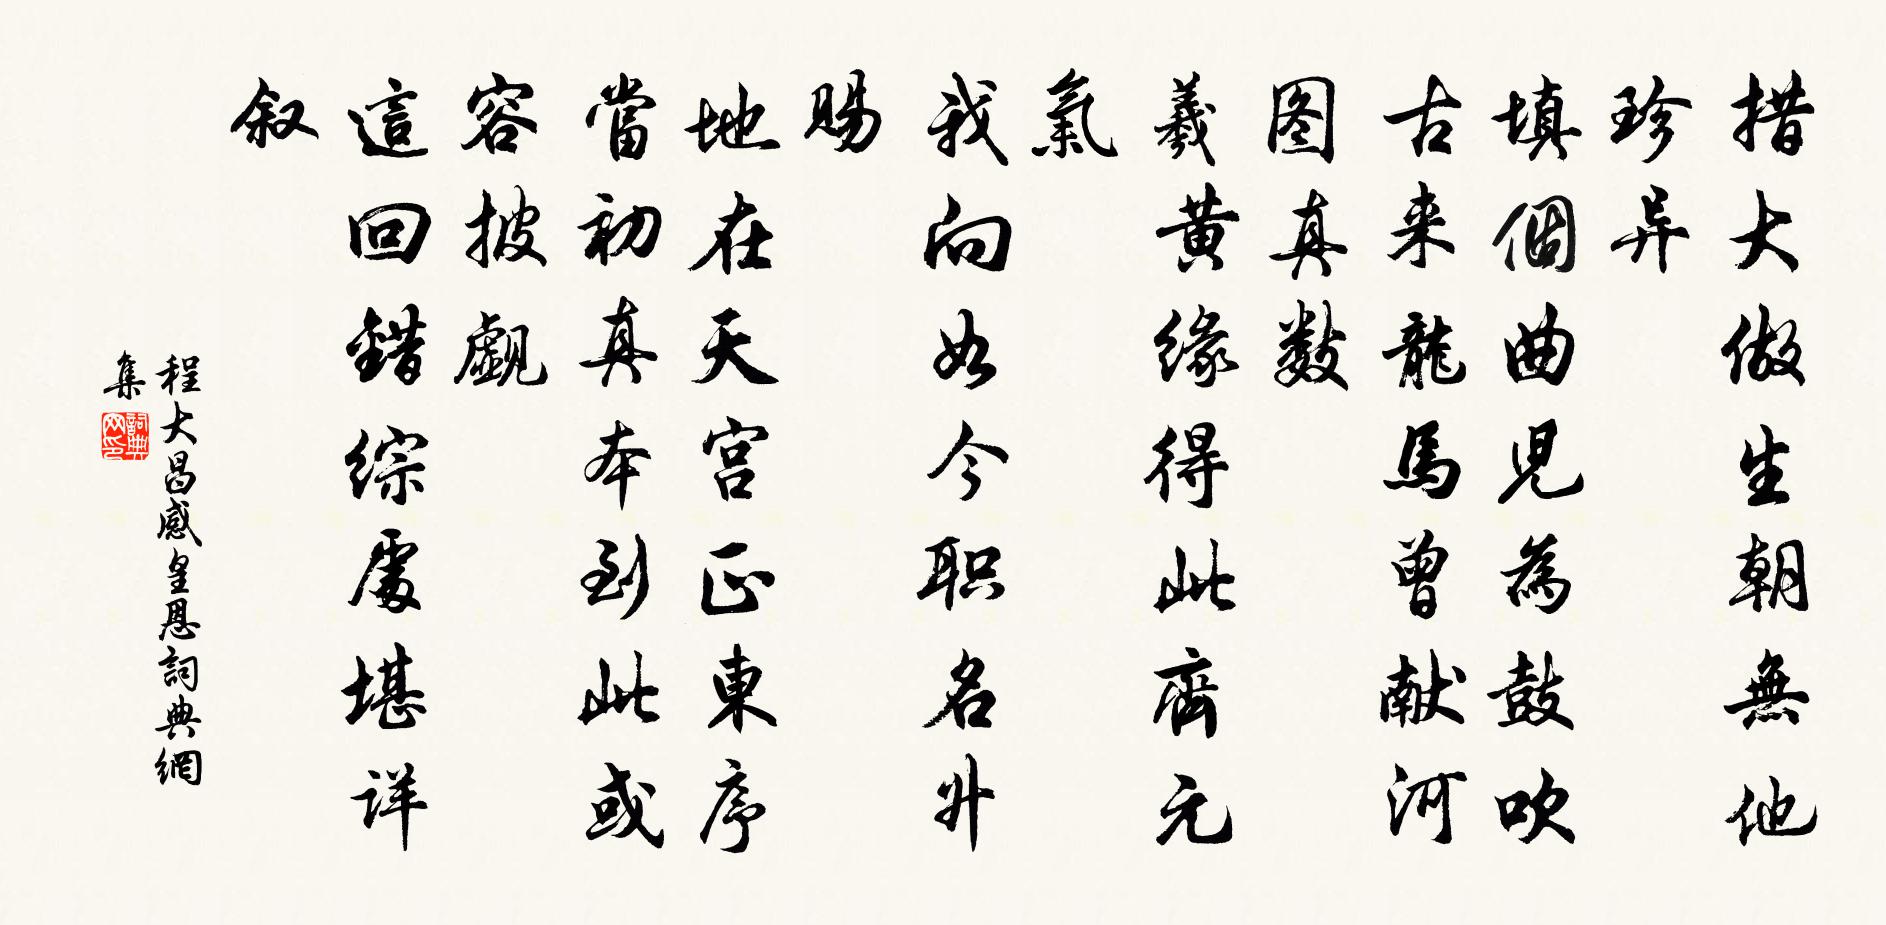 措大做生朝無他
珍异
填個曲児為鼓吹
古来龍馬曾献河
图真数
羲黄缘得此齊元
氣
我向如今职名升
賜
地在天宫正東序
當初真本到此或
容披覷
這回錯综處堪详
叙
程大昌感皇恩詞典網
集
詞典网印